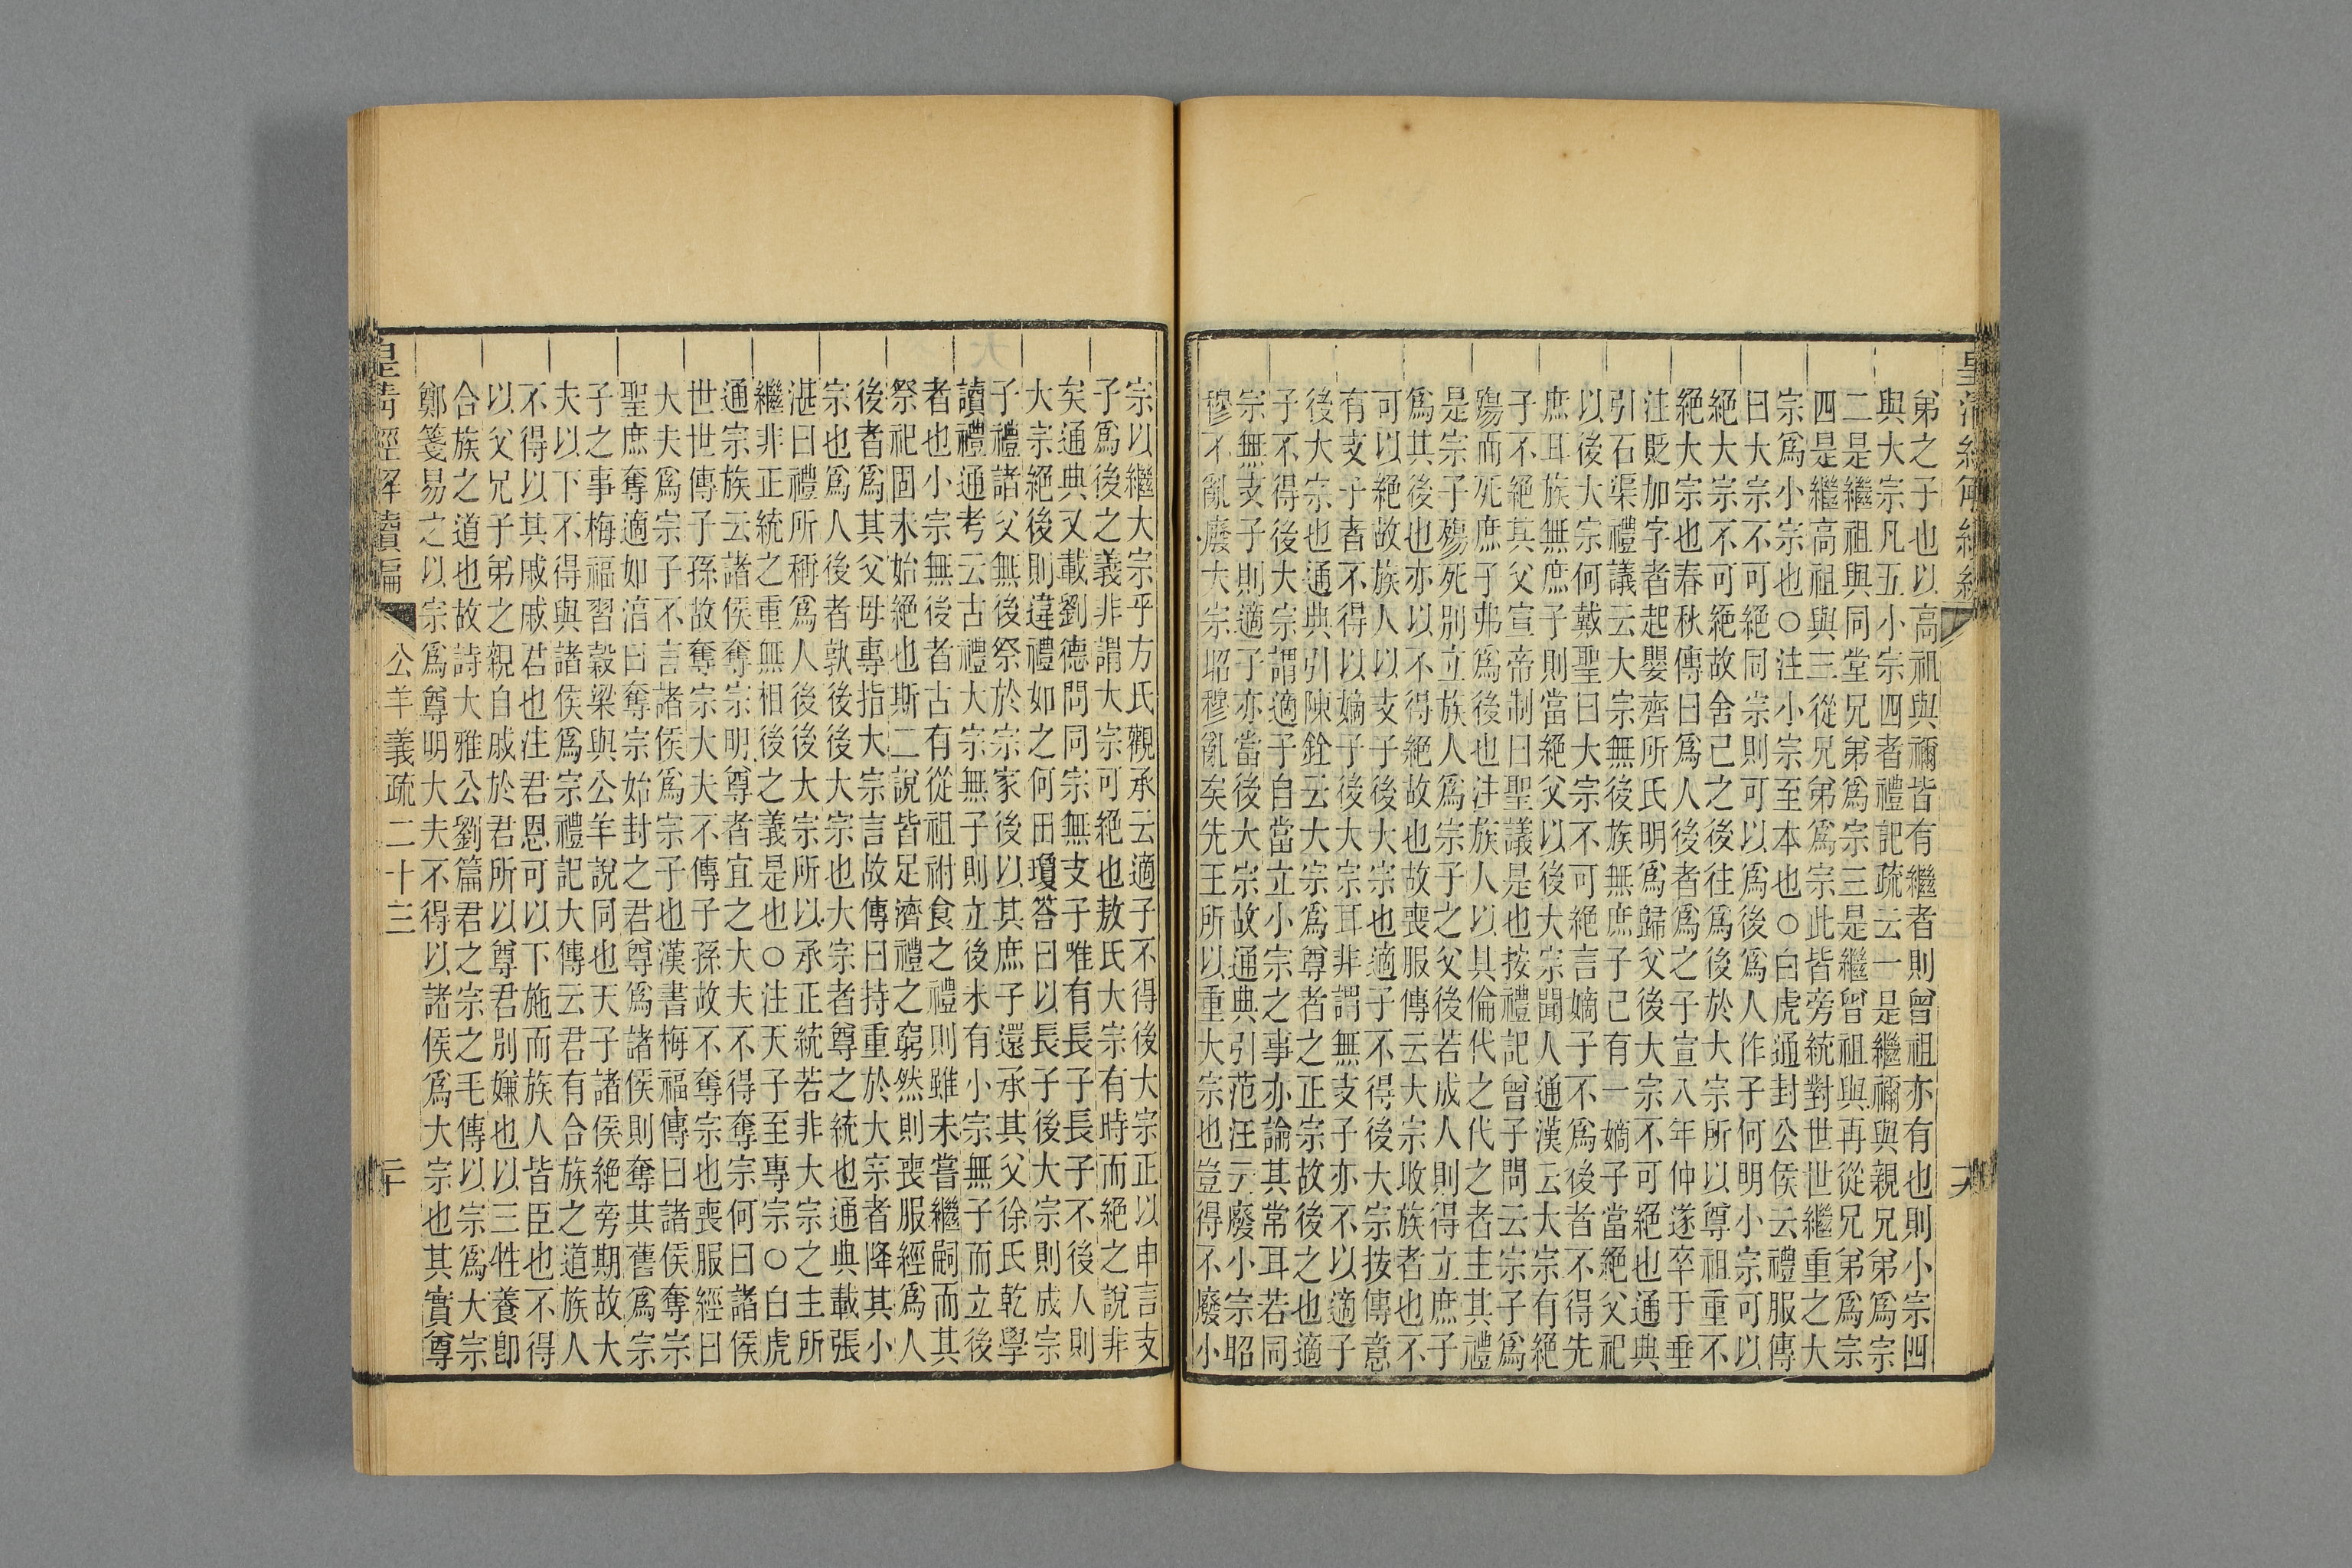 皇清經解續編
弟之子也以高祖與禰皆有繼者則曾祖亦有也則小宗四
與大宗凡五小宗四者禮記疏云一是繼禰與親兄弟爲宗
二是繼祖與同堂兄弟爲宗三是繼曾祖與再從兄弟爲宗
四是繼高祖與三從兄弟爲宗此皆旁統對世世繼重之大
宗爲小宗也○注小宗至本也○白虎通封公侯云禮服傳
曰大宗不可絕同宗則可以爲後爲人作子何明小宗可以
絕大宗不可絕故舍己之後往爲後於大宗所以尊祖重不
絕大宗也春秋傳曰爲人後者爲之子宣八年仲遂卒于垂
注貶加字者起嬰齊所氏明爲歸父後大宗不可絕也通典
引石渠禮議云大宗無後族無庶子已有一嫡子當絕父祀
以後大宗何戴聖曰大宗不可絕言嫡子不爲後者不得先
庶耳族無庶子則當絕父以後大宗聞人通漢云大宗有絕
子不絕其父宣帝制曰聖議是也按禮記曾子問云宗子爲
殤而死庶子弗爲後也注族人以其倫代之代之者主其禮
是宗子殤死別立族人爲宗子之父後若成人則得立庶子
爲其後也亦以不得絕故也故喪服傳云大宗收族者也不
可以絕故族人以支子後大宗也適子不得後大宗按傳意
有支子者不得以嫡子後大宗耳非謂無支子亦不以適子
後大宗也通典引陳銓云大宗爲尊者之正宗故後之也適
子不得後大宗謂適子自當立小宗之事亦論其常耳若同
宗無支子則適子亦當後大宗故通典引范汪云廢小宗昭
穆不亂廢大宗昭穆亂矣先王所以重大宗也豈得不廢小
宗以繼大宗乎方氏觀承云適子不得後大宗正以申言支
子爲後之義非謂大宗可絕也敖氏大宗有時而絕之說非
矣通典又載劉德問同宗無支子唯有長子長子不後人則
大宗絕後則違禮如之何田瓊荅曰以長子後大宗則成宗
子禮諸父無後祭於宗家後以其庶子還承其父徐氏乾學
讀禮通考云古禮大宗無子則立後未有小宗無子而立後
者也小宗無後者古有從祖祔食之禮則雖未嘗繼嗣而其
祭祀固未始絕也斯二說皆足濟禮之窮然則喪服經爲人
後者爲其父母專指大宗言故傳曰持重於大宗者降其小
宗也爲人後者孰後後大宗也大宗者尊之統也通典載張
湛曰禮所稱爲人後後大宗所以承正統若非大宗之主所
繼非正統之重無相後之義是也○注天子至專宗○白虎
通宗族云諸侯奪宗明尊者宜之大夫不得奪宗何曰諸侯
世世傳子孫故奪宗大夫不傳子孫故不奪宗也喪服經曰
大夫爲宗子不言諸侯爲宗子也漢書梅福傳曰諸侯奪宗
聖庶奪適如湻曰奪宗始封之君尊爲諸侯則奪其舊爲宗
子之事梅福習穀梁與公羊說同也天子諸侯絕旁期故大
夫以下不得與諸侯爲宗禮記大傳云君有合族之道族人
不得以其戚戚君也注君恩可以下施而族人皆臣也不得
以父兄子弟之親自戚於君所以尊君別嫌也以三牲養卽
合族之道也故詩大雅公劉篇君之宗之毛傳以宗爲大宗
鄭箋易之以宗爲尊明大夫不得以諸侯爲大宗也其實尊
皇清經解續編 公羊義疏二十三 二十